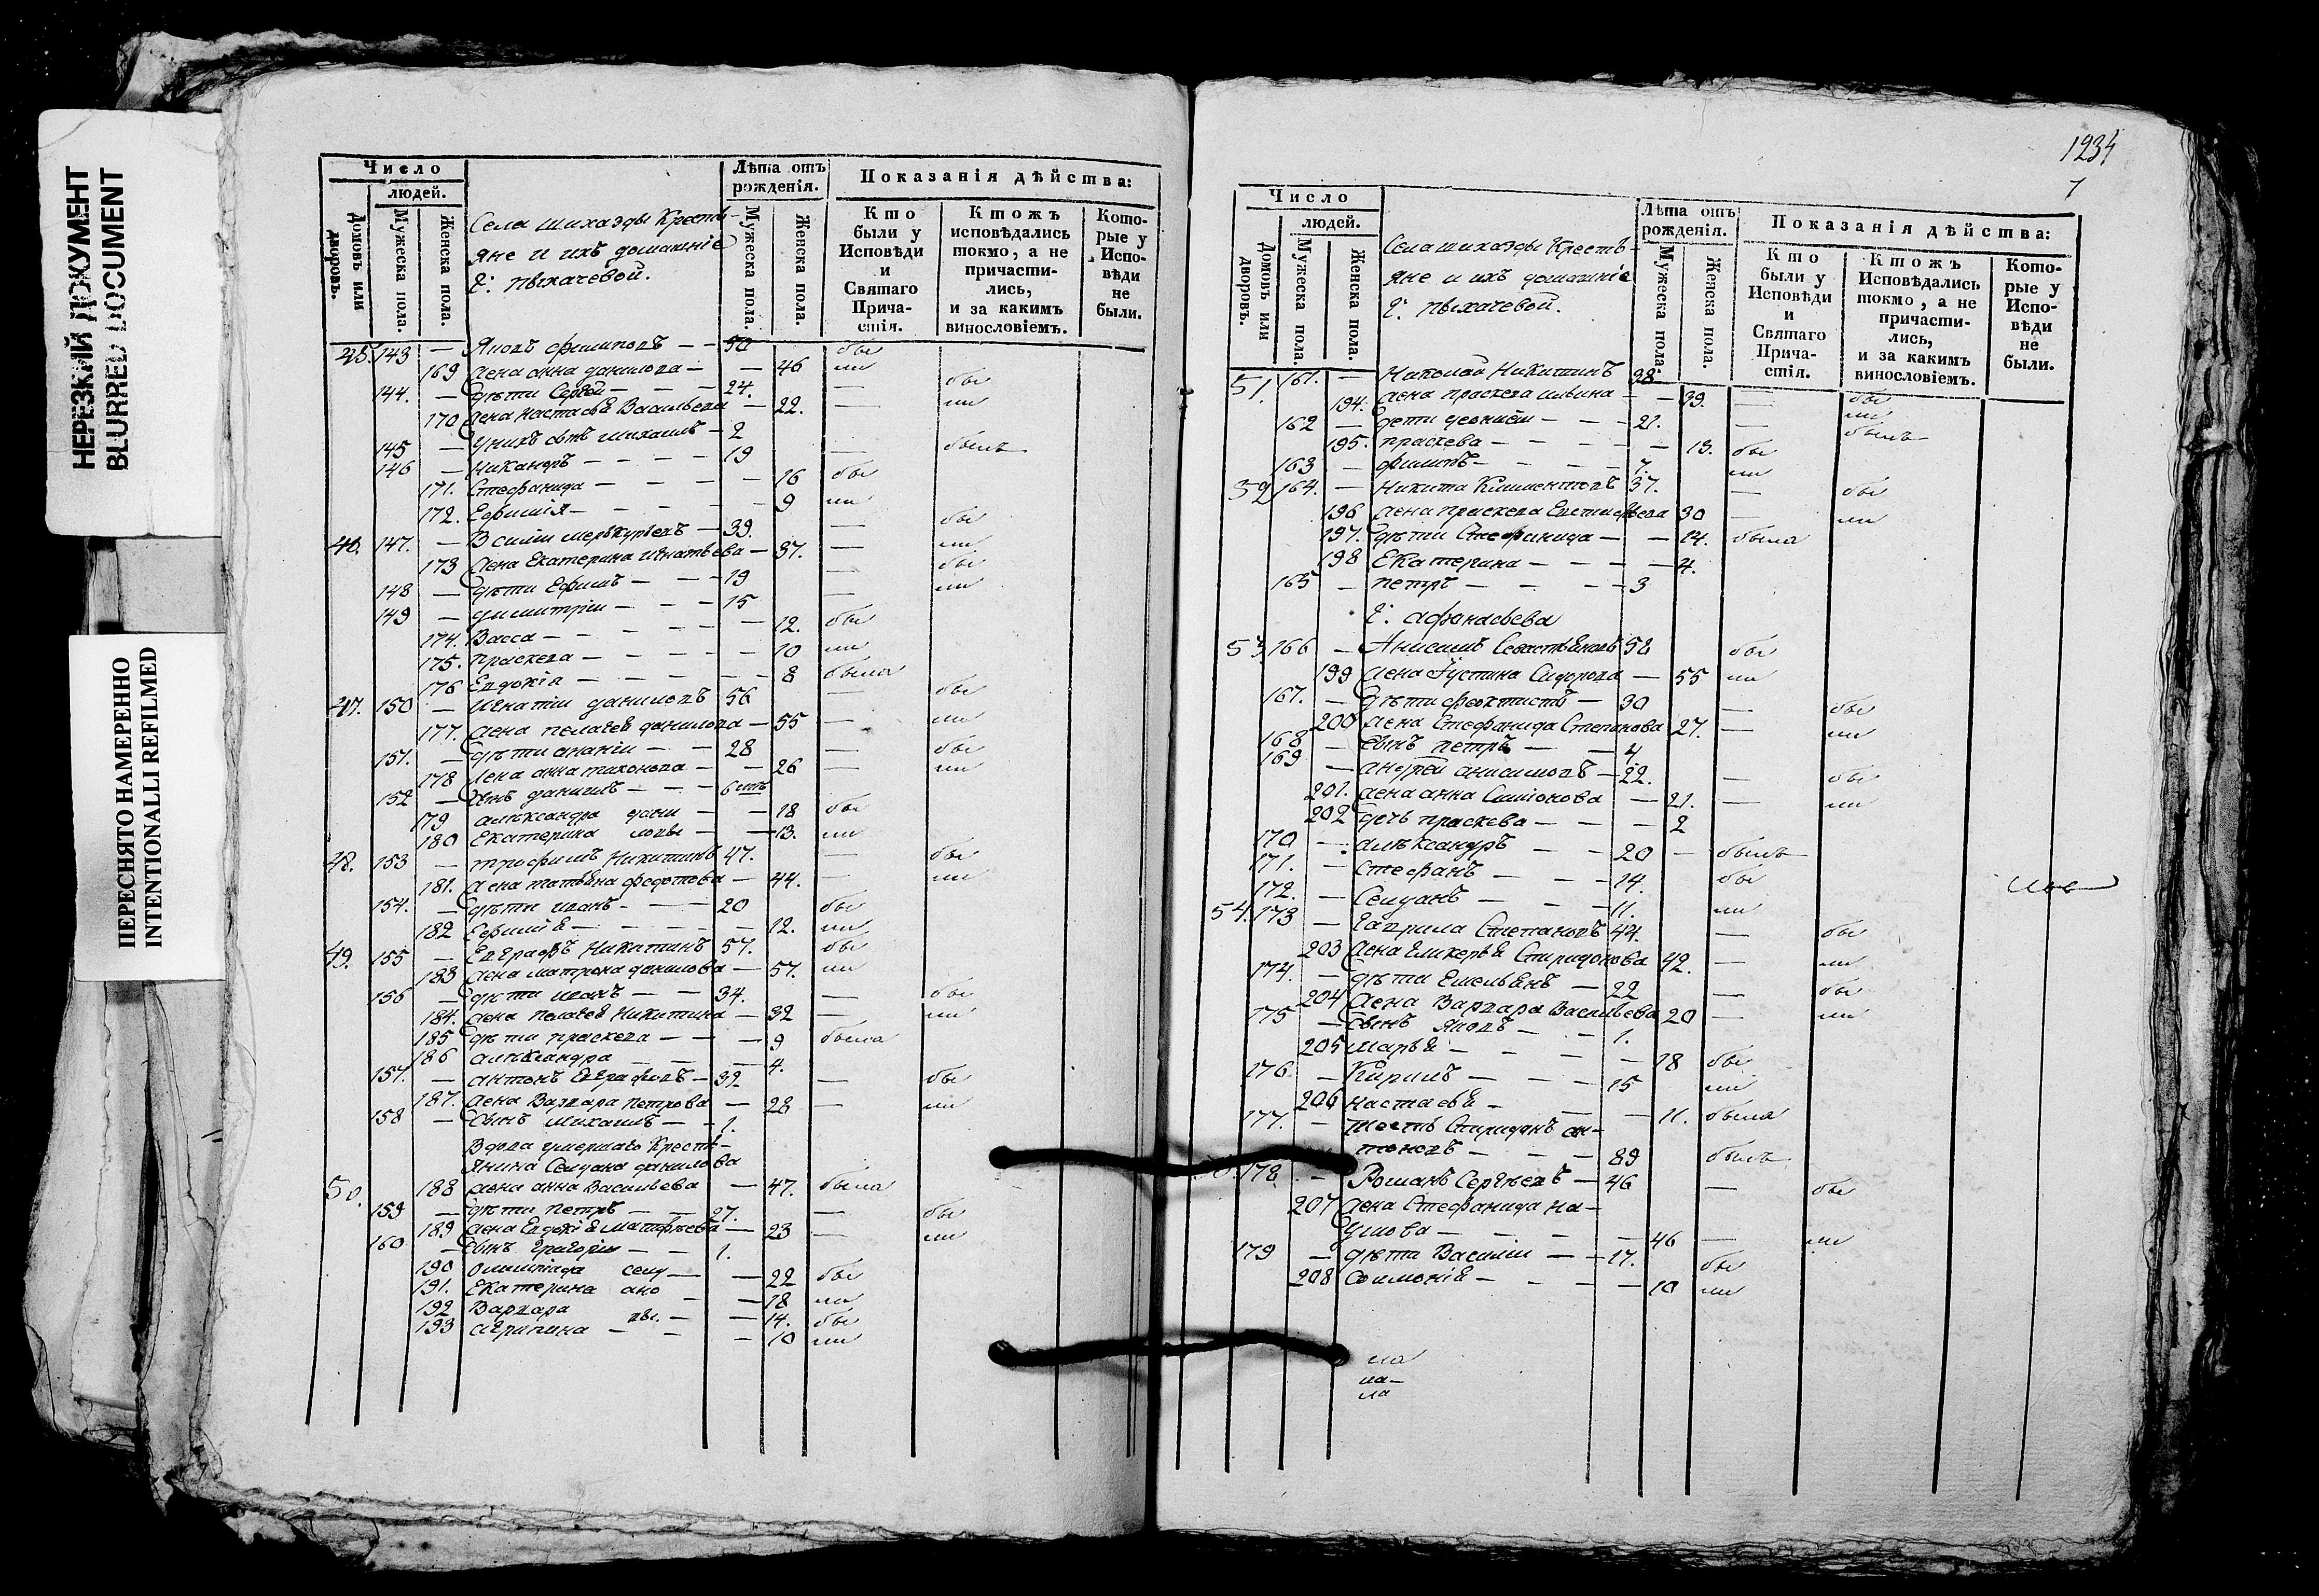 НЕРЕЗКИЙ ДОКУМЕНТ
BLURRED DOCUMENT
ПЕРЕСНЯТО НАМЕРЕННО
INTENTIONALLI REFILMED
Число
людей.
Домовъ или дворовъ.
Мужеска пола.
Женска пола.
Села Шихазды Кресть-
яне и ихъ домашніе
Г: Пыхачевой.
Лѣта отъ рожденія.
Мужеска пола.
Женска пола.
Показанія дѣйства:
Кто были у Исповѣди и Святаго Прича-стія.
Ктожъ исповѣдались токмо, а не причасти-лись, и за какимъ винословіемъ.
Кото-рые у Испо-вѣди не были.
45. 143 — Яковъ Филиповъ — — 50 бы
169 Жена Анна Данилова — — 46 ли
144. — Дѣти Сергей — — — 24. — бы
170 Жена Настасья Васильева — 22. — ли
145 — У нихъ сынъ Михаилъ — 2
146 — Никандръ — — — — 19 — былъ
171. Стефанида — — — — 16 бы
172. Ефимія — — — — 9 ли
46. 147. — Василий Меркурьевъ — 39. — бы
173 Жена Екатерина Игнатьева — 37. — ли
148 — Дѣти Ефимъ — — — 19 — бы
149 — Димитрій — — — 15 — ли
174. Васса — — — — — 12. бы
175. Праскева — — — — — 10 ли
176 Евдокія — — — — — 8 была
47. 150 — Игнатій Даниловъ 56 — бы
177. Жена Пелагея Данилова — 55 — ли
151. — Дѣти Ананій — — 28 — бы
178 Жена Анна Тихонова — — 26 — ли
152 — Сынъ Данилъ — — —
179 Александра — — 18 бы
180 Екатерина — — 13. ли
48. 153 — Трофимъ Никитинъ 47. — бы
181. Жена Татьяна Федотова — 44. — ли
154. — Дѣти Иванъ — — — 20 бы
182 Ефимія — — — — — 12. ли
49. 155 — Евграфъ Никитинъ 57. бы
183 Жена Матрона Данилова — 57. ли
156 — Дѣти Иванъ — — 34. — бы
184. Жена Пелагея Никитина — 32 — ли
185 Дѣти Праскева — — — 9 была
186 Александра — — — 4.
157. — Антонъ Евграфовъ — 32 — бы
187. Жена Варвара Петрова — 28 — ли
158 — Сынъ Михаилъ — — 1.
Вдова умершаго Кресть-
янина Семдана Данилова
50. 188 Жена Анна Васильева — 47. была
159 — Дѣти Петръ — — 27. — бы
189 Жена Евдокія Матфѣева — 23 — ли
160 — Сынъ Григорій — — 1.
190 Олимпіада — — 22 бы
191. Екатерина — — 18 ли
192 Варвара — — 14. бы
193 Агрипина — — — 10 ли
1234
7
Число
людей.
Домовъ или дворовъ.
Мужеска пола.
Женска пола.
Села Шихазды Кресть-
яне и ихъ домашніе
Г: Пыхачевой.
Лѣта отъ рожденія.
Мужеска пола.
Женска пола.
Показанія дѣйства:
Кто были у Исповѣди и Святаго Прича-стія.
Ктожъ Исповѣдались токмо, а не причасти-лись, и за какимъ винословіемъ.
Кото-рые у Испо-вѣди не были.
51. 161. — Николай Никитинъ 38. — бы
194. Жена Праскева — — 39. — ли
162 — Дети Леонтій — — — 21. — былъ
195. Праскева — — — — — 13. бы
163 — Филипъ — — — — 7. ли
52 164. — Никита Климентовъ 37. — бы
196 Жена Праскева 30 — ли
197. Дѣти Стефанида — — 14. была
198 Екатерина — — — — 4.
165 — Петръ — — — — 3
Г: Афанасьева
53. 166 — Анисимъ Севастьяновъ 58 бы
199 Жена Іустина Сидорова — 55 ли
167. — Дѣти Феоктистъ — 30 — бы
200 Жена Стефанида Степанова 27. — ли
168 — Сынъ Петръ — — 4
169 — Андрей Анисимовъ — 22. — бы
201. Жена Анна Симіонова — 21. — ли
202 Дочь Праскева — — — 2
170 — Александръ — — 20 — былъ
171. — Стефанъ — — — 14. бы
172. — Семданъ — — — 11. ли
54. 173 — Гаврила Степановъ 44. — бы
203 Жена Гликерья Спиридонова 42. — ли
174. — Дѣти Емельянъ — 22 — бы
204 Жена Варвара Васильева 20 — ли
175 — Сынъ Яковъ — — 1.
205 Марья — — — — — 18 бы
176. — Кирилъ — — — 15 ли
206 Настасья — — — 11. была
177. — Тесть Спиридонъ Ан-
тоновъ — — — 89 былъ
178 — Романъ Сергѣевъ — 46 — бы
207 Жена Стефанида На-
умова — — — — — 46 — ли
179 — Дѣти Василій — — 17. бы
208 Соломонія — — — — 10 ли
ла
ла —
ла